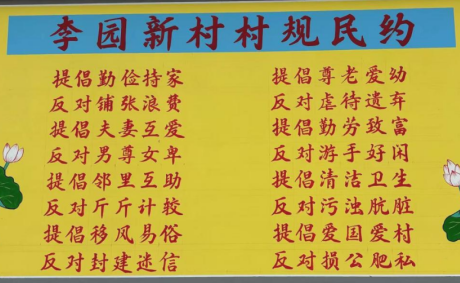 李园新村村规民约
提倡勤俭持家
反对铺张浪费
提倡夫妻互爱
反对男尊女卑
提倡邻里互助
反对斤斤计较
提倡移风易俗
反对封建迷信
提倡尊老爱幼
反对虐待遗弃
提倡勤劳致富
反对游手好闲
提倡清洁卫生
反对污浊肮脏
提倡爱国爱村
反对损公肥私